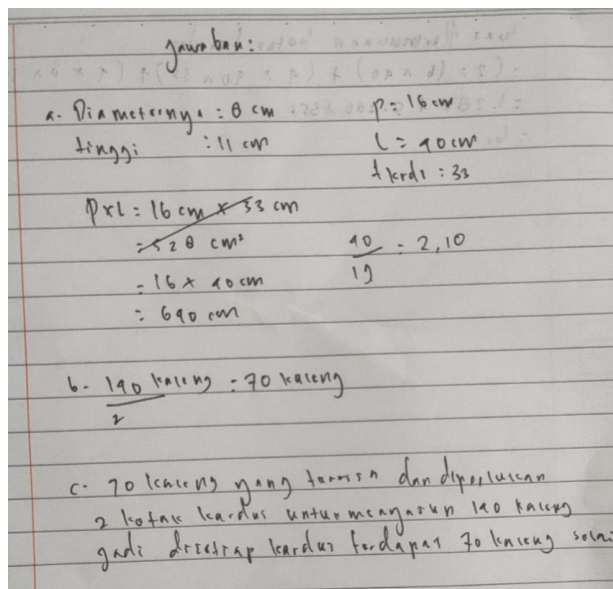 Jawaban:
a. Diameternya : 8 cm p = 16 cm
tinggi : 11 cm l = 40 cm
t krds : 33
p x l = 16 cm x 33 cm
= 528 cm²
= 16 x 40 cm
= 640 cm
40/19 = 2,10
b. 140 kaleng/2 = 70 kaleng
c. 70 kaleng yang dan diperlukan
2 kotak kardus untuk menyusun 140 kaleng
jadi disetiap kardus terdapat 70 kaleng